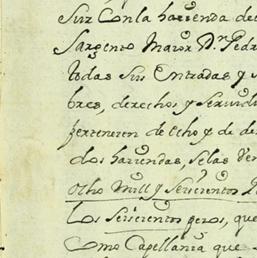 Suz Con la hazienda de
Sargento Maior D.n Pedr
todas sus Entradas y s
bres, derechos y servidu
pertenecen de echo y de de
dos haziendas, selas Ven
otho mill y seiscientos p
los seiscientos pesos, que
Como Capellania que